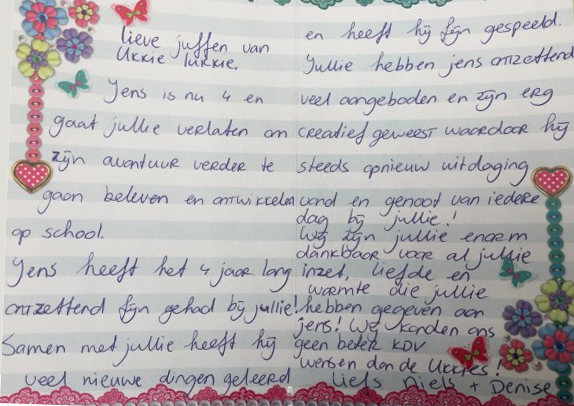 lieve juffen van
Ukkie Lukkie.
Jens is nu 4 en
gaat jullie verlaten om
zijn avontuur verder te
gaan beleven en ontwikkelen
op school.
Jens heeft het 4 jaar lang
ontzettend fijn gehad bij jullie!
Samen met jullie heeft hij
veel nieuwe dingen geleerd
en heeft hij fijn gespeeld.
Jullie hebben jens ontzettend
veel aangeboden en zijn erg
creatief geweest waardoor hij
steeds opnieuw uitdaging
vond en genoot van iedere
dag bij jullie!
Wij zijn jullie enorm
dankbaar voor al jullie
inzet, liefde en
warmte die jullie
hebben gegeven aan
jens! We konden ons
geen beter KDV
wensen dan de Ukkies!
Liefs Niels + Denise